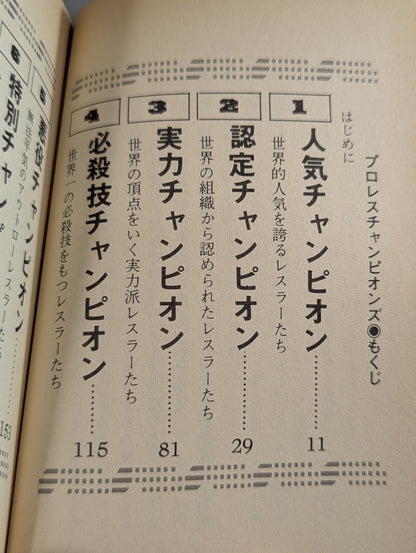 プロレスチャンピオンズ◉もくじ
はじめに
1
人気チャンピオン………11
世界的人気を誇るレスラーたち
2
認定チャンピオン………29
世界の組織から認められたレスラーたち
3
実力チャンピオン………81
世界の頂点をいく実力派レスラーたち
4
必殺技チャンピオン………115
世界一の必殺技をもつレスラーたち
5
悪役チャンピオン………153
無法平気のアウトローレスラーたち
6
特別チャンピ